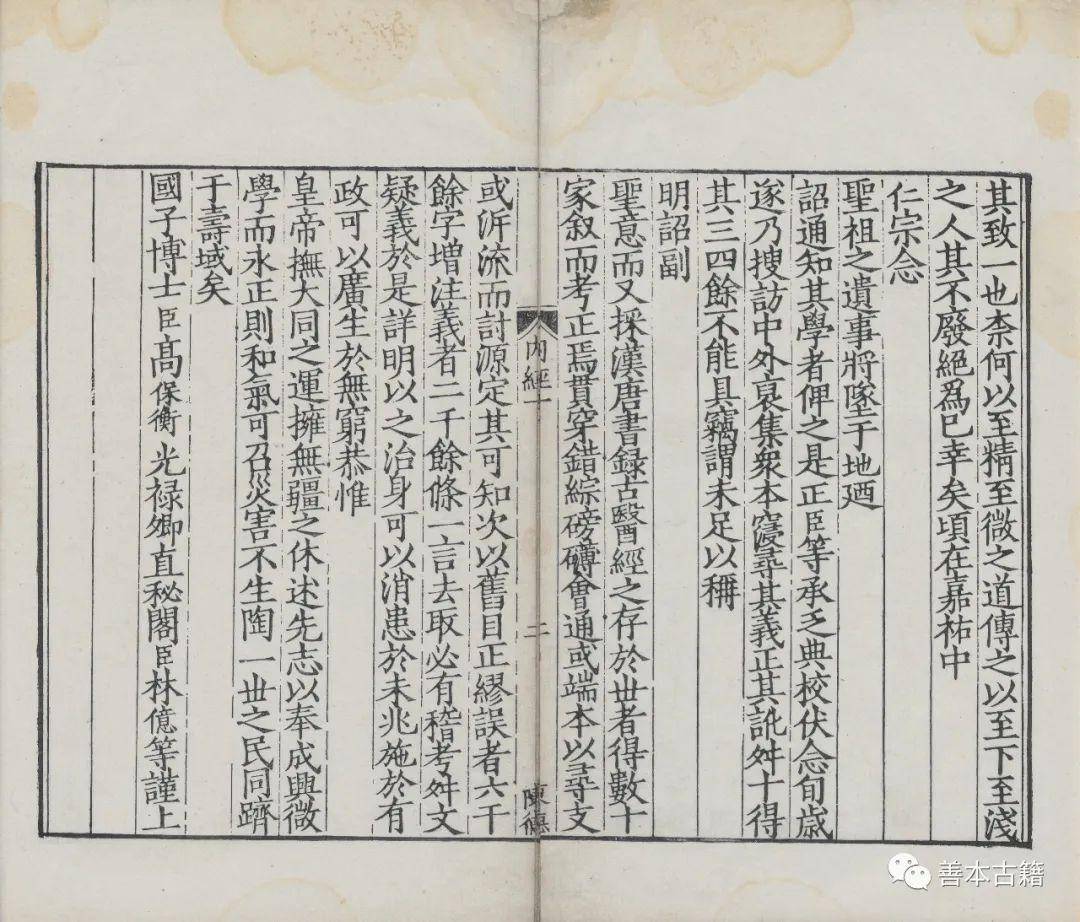 其致一也柰何以至精至微之道傳之以至下至淺
之人其不廢絕爲已幸矣頃在嘉祐中
仁宗念
聖祖之遺事將墜于地廼
詔通知其學者俾之是正臣等承乏典校伏念旬歲
遂乃搜訪中外裒集衆本寖尋其義正其訛舛十得
其三四餘不能具竊謂未足以稱
明詔副
聖意而又採漢唐書録古醫經之存於世者得數十
家叙而考正焉貫穿錯綜磅礴會通或端本以尋支
內經一
二
陳德
或泝流而討源定其可知次以舊目正繆誤者六千
餘字增注義者二千餘條一言去取必有稽考舛文
疑義於是詳明以之治身可以消患於未兆施於有
政可以廣生於無窮恭惟
皇帝撫大同之運擁無疆之休述先志以奉成興微
學而永正則和氣可召災害不生陶一世之民同躋
于壽域矣
國子博士臣高保衡光禄卿直秘閣臣林億等謹上
善本古籍